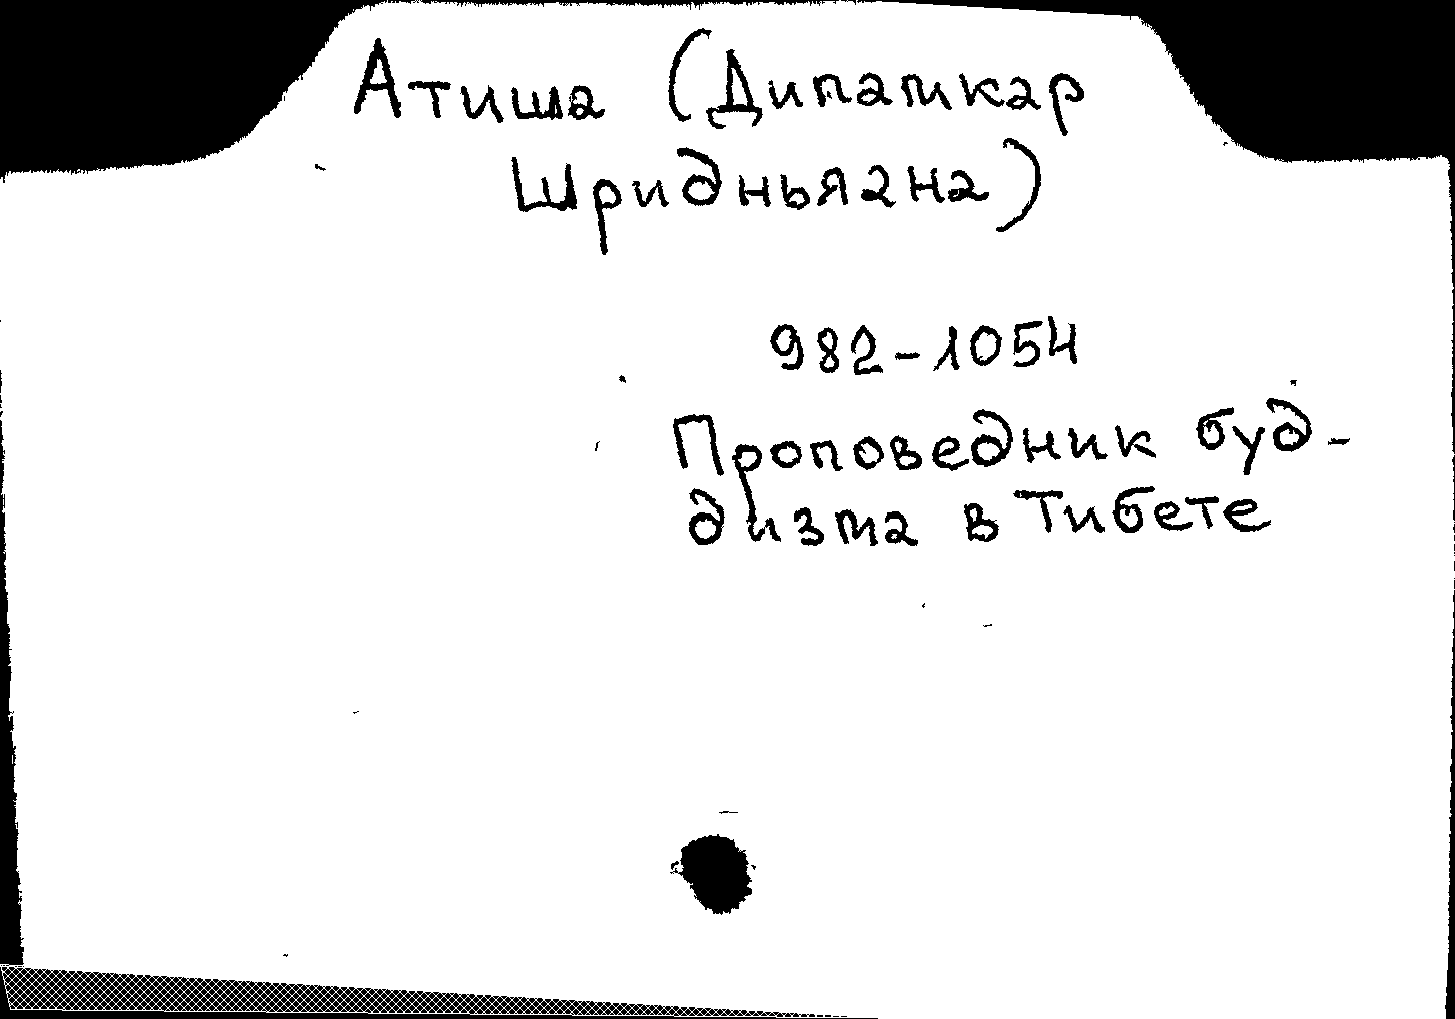 Атиша (Дипамкар
Шридньяана)
982-1054
Проповедник буд-
дизма в Тибете